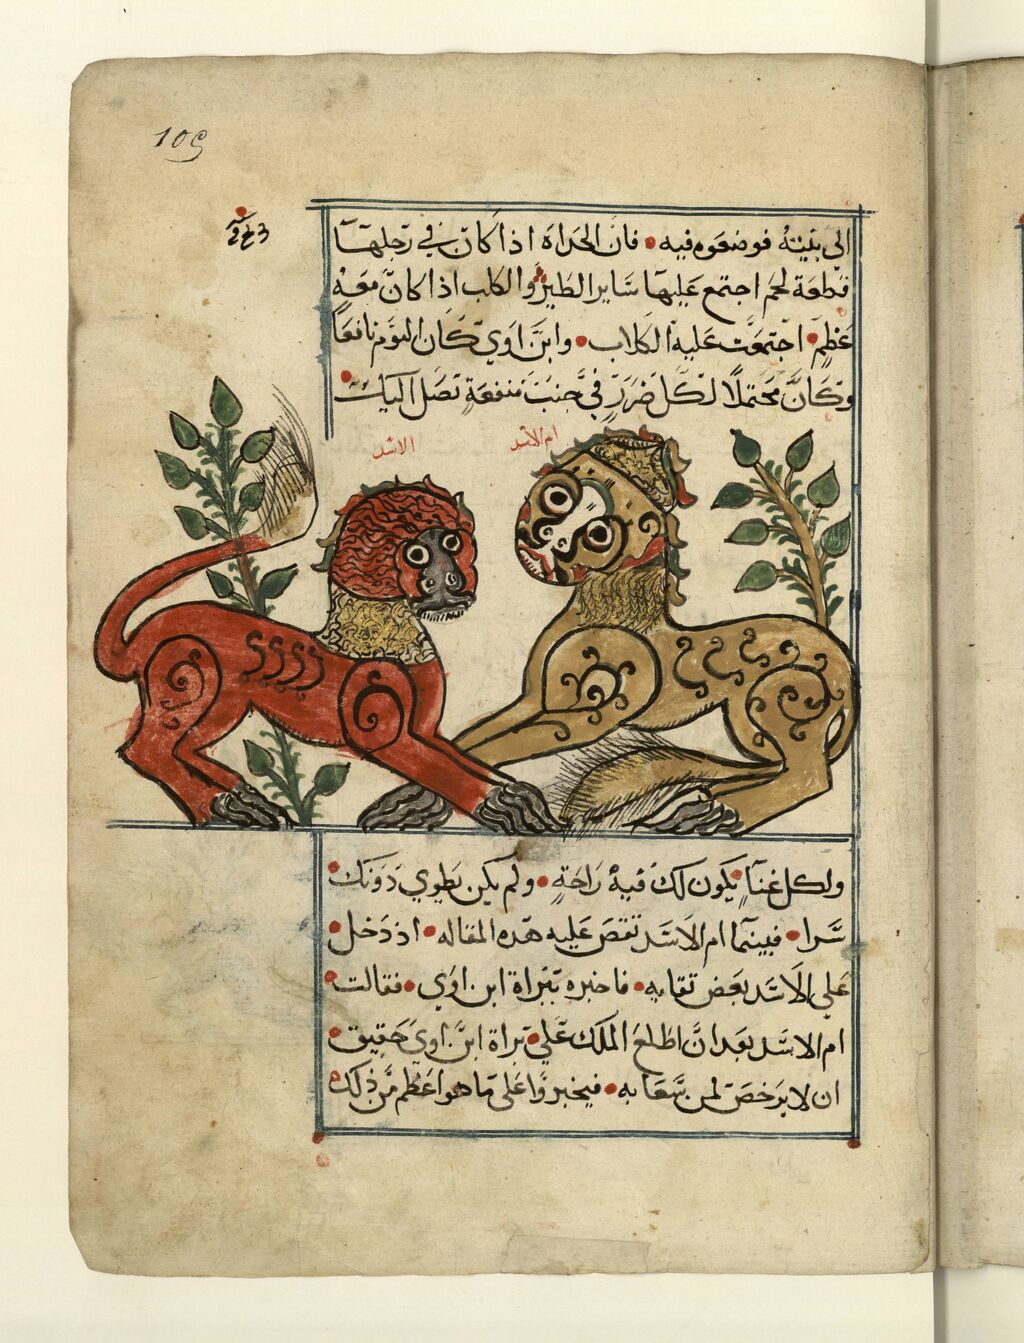 109
الى بيته فوضعوه فيه • فان الحداة اذا كان في رجلها
قطعة لحم اجتمع عليها ساير الطير • والكلب اذا كان معه
عظم • اجتمعت عليه الكلاب • وابن اوي كان اليوم نافعا
وكان محتملا لكل ضرر في جنب منفعة تصل اليك •
الاسد
ام الاسد
ولكل غنآ يكون لك فيه راحة • ولم يكن يطوي دونك •
سرا • فبينما ام الاسد تقص عليه هذه المقاله • اذ دخل •
علي الاسد بعض ثقاته • فاخبره ببراة ابن اوي • فقالت •
ام الاسد بعد ان اطلع الملك علي براة ابن اوي حقيق •
ان لا يرخص لمن سعا به • فيتجروا علي ما هو اعظم من ذلك